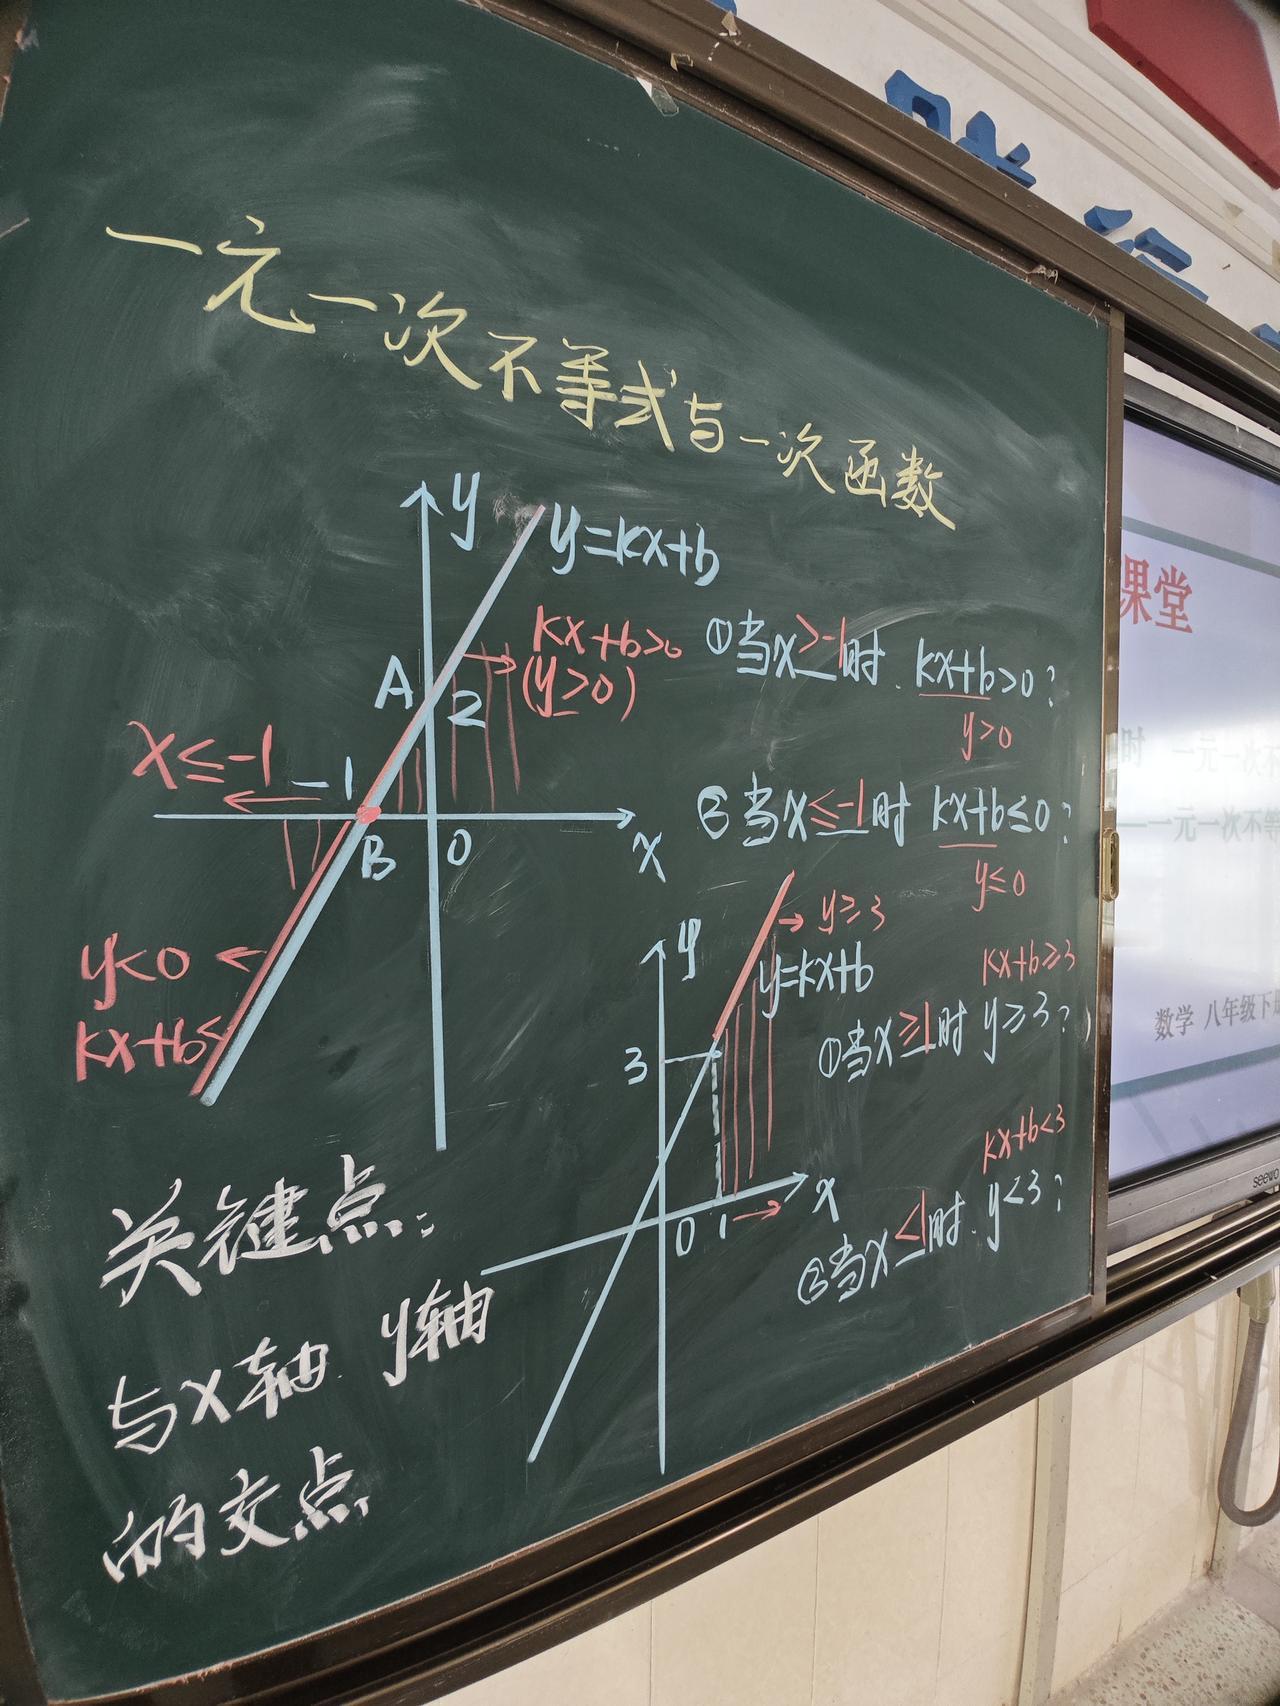 一元一次不等式与一次函数
y
y=kx+b
kx+b>0
(y>0)
A
2
x≤-1
-1
B
0
x
y<0
kx+b≤
①当x>-1时. kx+b>0?
y>0
②当x≤-1时 kx+b≤0?
y≤0
y
y≥3
y=kx+b
3
0
1
x
kx+b≥3
①当x≥1时 y≥3?
kx+b<3
②当x<1时. y<3?
关键点:
与x轴. y轴
的交点
课堂
时 一元一次不
一元一次不等
数学 八年级下
seewo